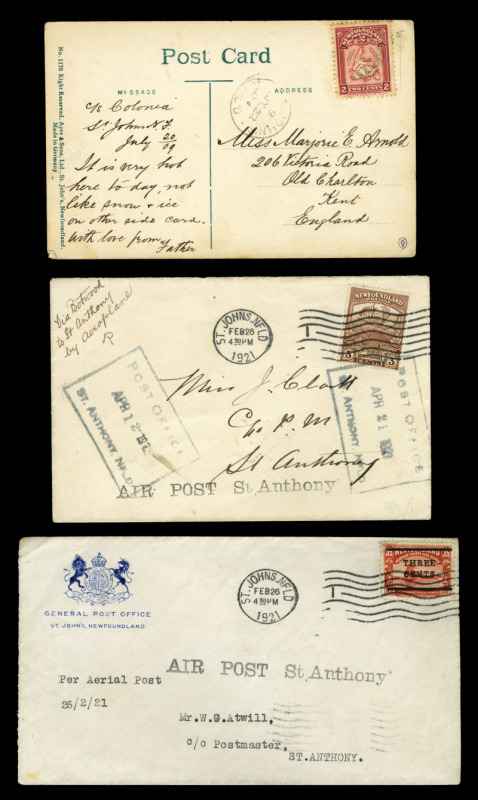 Post Card
No. 1170 Right Reserved, Ayre & Sons, Ltd., St. John's, Newfoundland.
Made in Germany
MESSAGE
ADDRESS
c/o Colonia
St Johns N.F
July 20/09
It is very hot
here to day not
like snow & ice
on other side card.
With love from
Father
NEWFOUNDLAND
2 TWO CENTS 2
Miss Marjorie E. Arnold
206 Victoria Road
Old Charlton
Kent
England
Via Botwood
to St Anthony
by Aeroplane
R
ST. JOHNS, NFLD
FEB 26
4 30 PM
1921
NEWFOUNDLAND
3 CENTS 3
POST OFFICE
APR 12 192
ST. ANTHONY, NFLD
POST OFFICE
APR 21 1921
ST. ANTHONY, NFLD
Miss J.
St Anthony
AIR POST St Anthony
GENERAL POST OFFICE
ST. JOHN'S, NEWFOUNDLAND
ST. JOHNS, NFLD
FEB 26
4 30 PM
1921
THREE
CENTS
AIR POST St Anthony
Per Aerial Post
25/2/21
Mr. W.G. Atwill,
c/o Postmaster,
ST. ANTHONY.